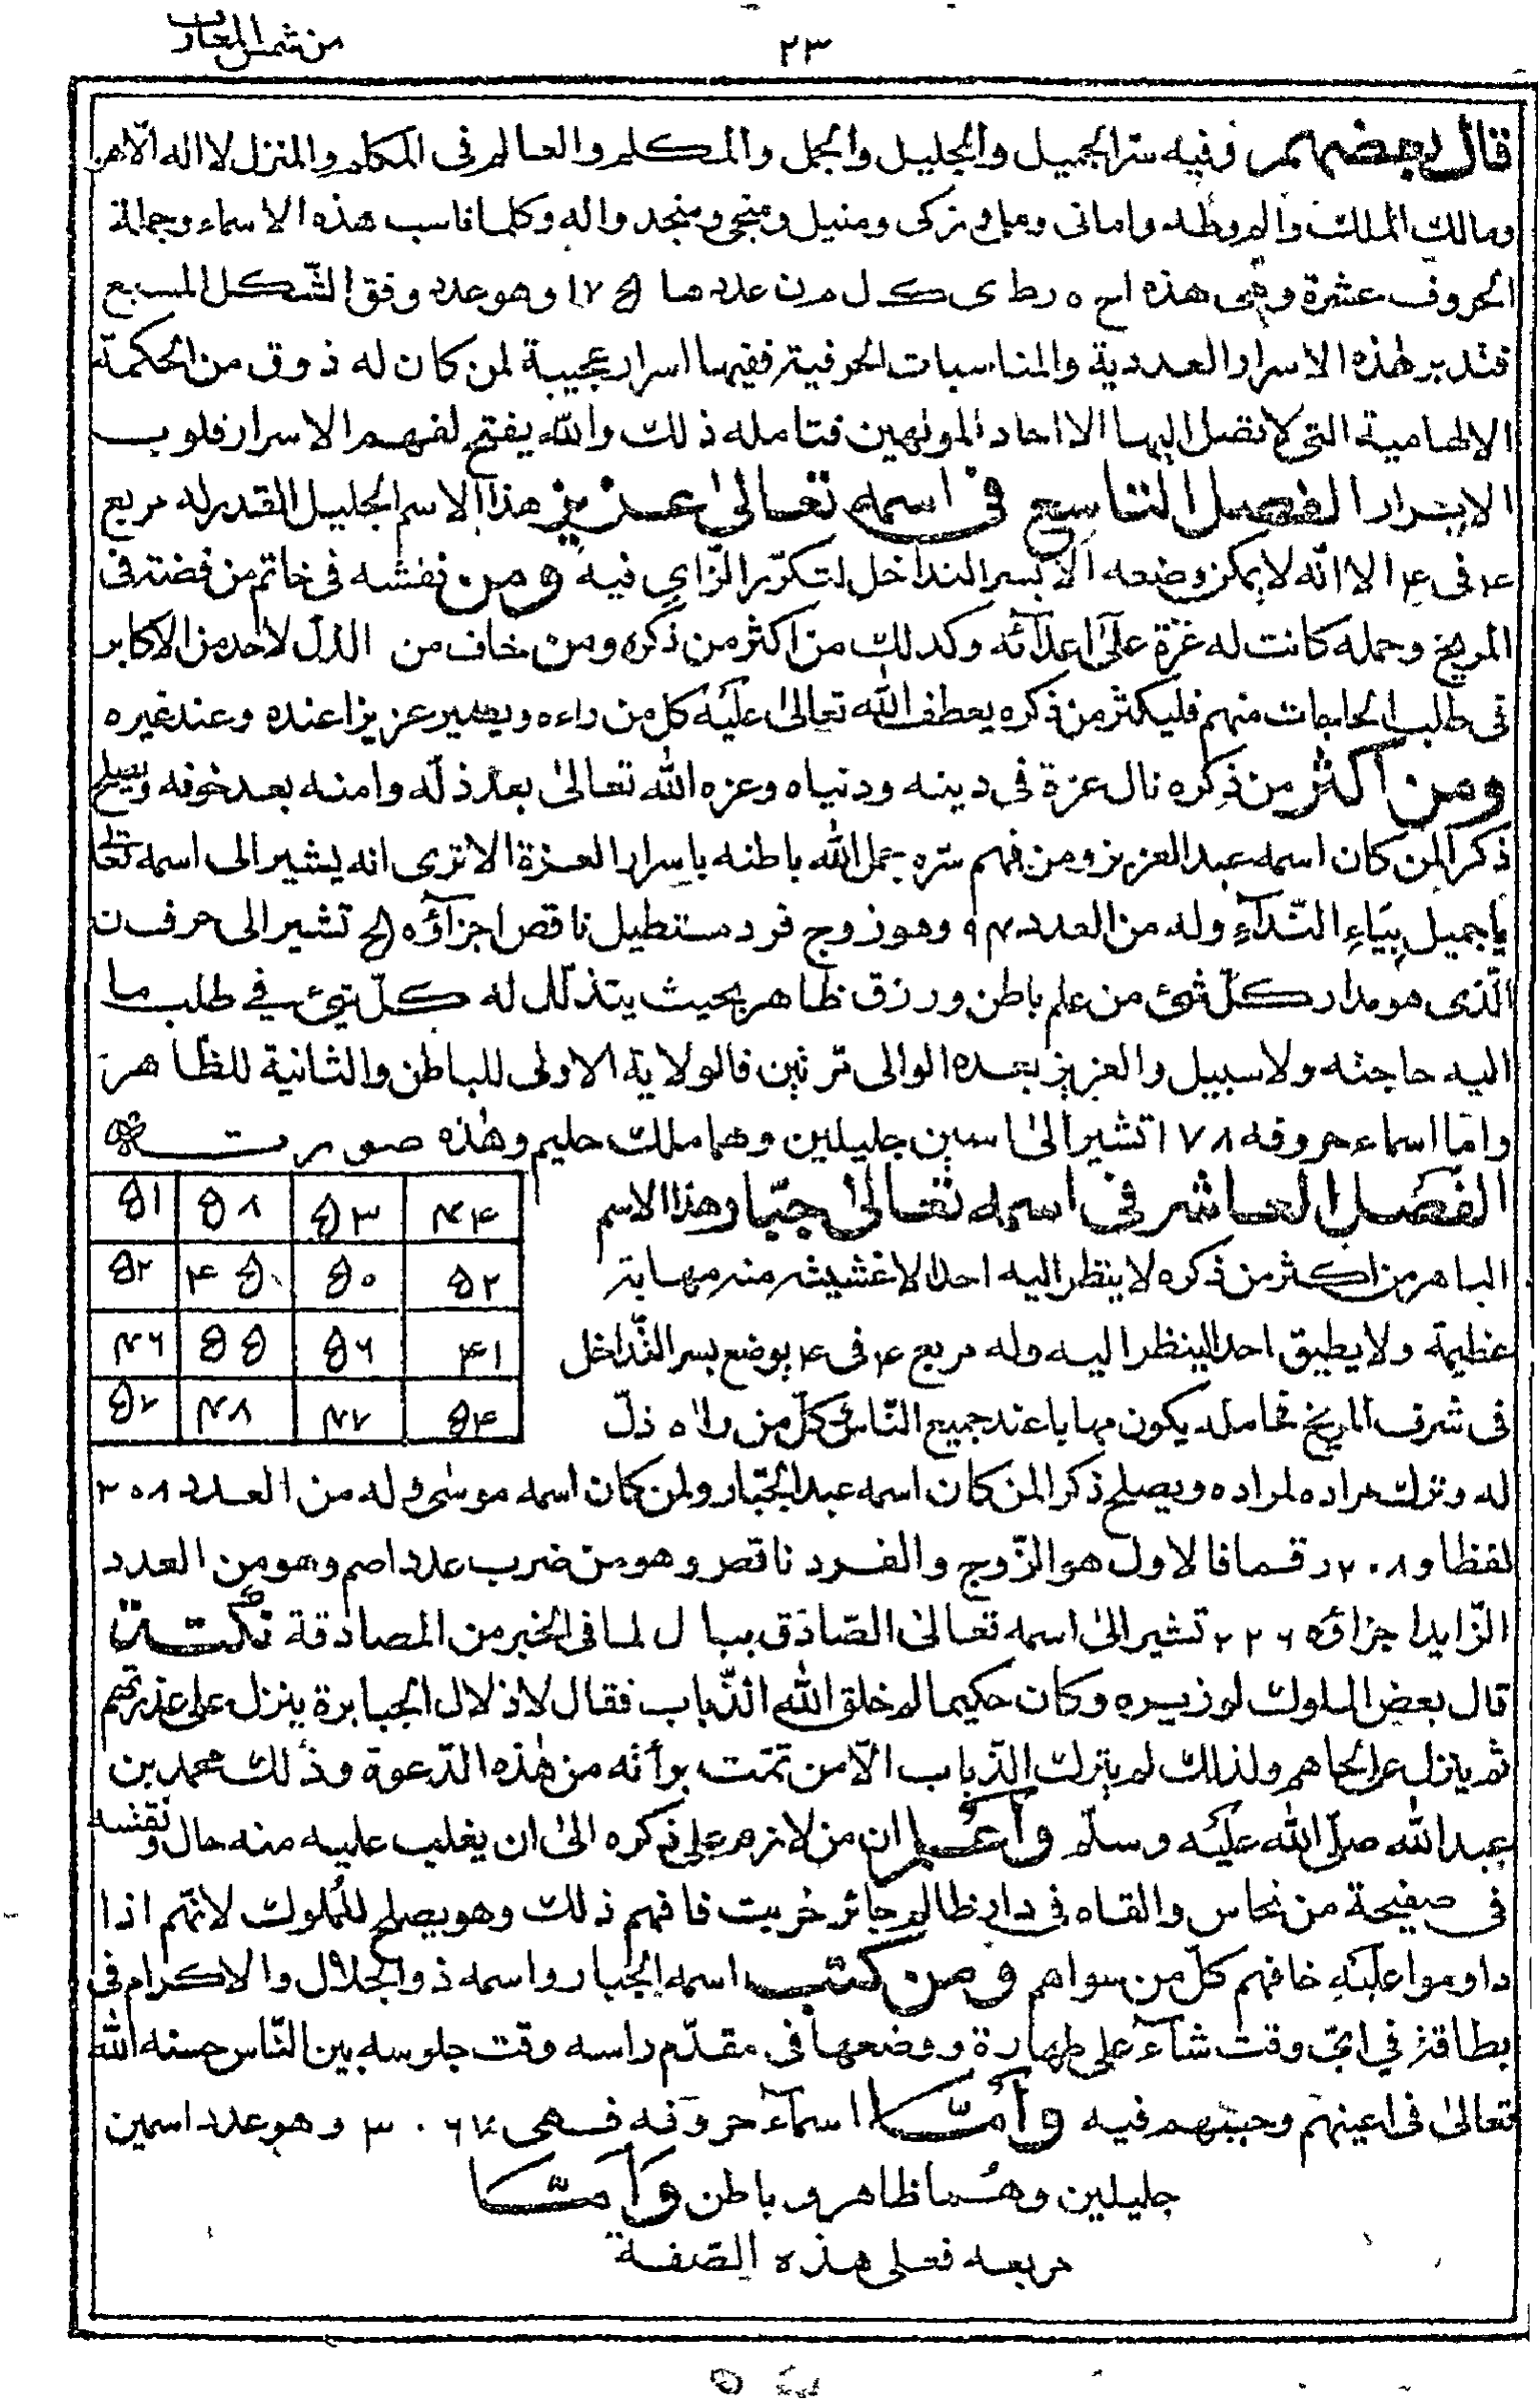 ٢٣
من شمس المعارف
قال بعضهم وفيه سر الجميل والجليل والمجمل والمكلم والعالم فى المكلم والمنزل لا اله الا من
ومالك الملك واماتى ومزكى ومنيل ومنجى ومنجد واله وكلما ناسب هذه الاسماء وجملة
الحروف عشرة وهى هذه ا ح ه ر ط ى ك ل م ن عددها وهو عدد وفق الشكل المسبع
فتدبر هذه الاسرار العددية والمناسبات الحرفية ففيها اسرار عجيبة لمن كان له ذوق من الحكمة
الالهامية التى لا تصل اليها الا احاد المولهين فتامله ذلك والله يفتح لفهم الاسرار قلوب
الابرار الفصل التاسع فى اسمه تعالى عزيز هذا الاسم الجليل القدر له مربع
٤ فى ٤ الا انه لا يمكن وضعه الا بسر التداخل لتكرير الزاى فيه ومن نقشه فى خاتم من فضة فى
المريخ وحمله كانت له عزة على اعدآئه وكذلك من اكثر من ذكره ومن خاف من الذل لاحد من الاكابر
فى طلب الحاجات منهم فليكثر من ذكره يعطف الله تعالى عليه كل من راءه ويصير عزيزا عنده وعند غيره
ومن اكثر من ذكره نال عزة فى دينه ودنياه وعزه الله تعالى بعد ذله وامنه بعد خوفه ويصلح
ذكرا لمن كان اسمه عبد العزيز ومن فهم سره جمل الله باطنه باسرار العزة الا ترى انه يشير الى اسمه تعالى
يا جميل بياء الندآء وله من العدد ٩٤ وهو زوج فرد مستطيل ناقص اجزآؤه تشير الى حرف ن
الذى هو مدار كل شئ من علم باطن ورزق ظاهر بحيث يتذلل له كل شئ فى طلب ما
اليه حاجته ولا سبيل والعزيز بعده الوالى مرتين فالولاية الاولى للباطن والثانية للظاهر
واما اسماء حروفه ١٧٨ تشير الى اسمين جليلين وهما ملك حليم وهذه صورته
الفصل العاشر فى اسمه تعالى جبار وهذا الاسم
الباهر من اكثر من ذكره لا ينظر اليه احد الا غشيته منه مهابة
عظيمة ولا يطيق احد النظر اليه وله مربع ٤ فى ٤ يوضع بسر التداخل
فى شرف المريخ فحامله يكون مهابا عند جميع الناس كل من راه ذل
٤٤ ٥٣ ٥٨ ٥١
٥٢ ٥٠ ٤٥ ٥٢
٤١ ٥٦ ٥٥ ٤٦
٥٤ ٤٧ ٤٨ ٥٧
له وترك مراده لمراده ويصلح ذكرا لمن كان اسمه عبد الجبار ولمن كان اسمه موسى وله من العدد ٢٠٨
لفظا و٢٠٨ رقما فالاول هو الزوج والفرد ناقص وهو من ضرب عدد اصم وهو من العدد
الزايد اجزاؤه ٢٢٦ تشير الى اسمه تعالى الصادق بباء ل لما فى الخبر من المصادقة نكتة
قال بعض الملوك لوزيره وكان حكيما لم خلق الله الذباب فقال لاذلال الجبابرة ينزل على عذرتهم
ثم ينزل على لحاهم ولذلك لم يترك الذباب الا من تمت برأته من هذه الدعوة وذلك محمد بن
عبد الله صلى الله عليه وسلم واعلم ان من لازم على ذكره الى ان يغلب عليه منه حال ونقشه
فى صفيحة من نحاس والقاه فى دار ظالم جائر خربت فافهم ذلك وهو يصلح للملوك لانهم اذا
داوموا عليه خافهم كل من سواهم ومن كتب اسمه الجبار واسمه ذو الجلال والاكرام فى
بطاقة فى اى وقت شآء على طهارة ووضعها فى مقدم راسه وقت جلوسه بين الناس حسنه الله
تعالى فى اعينهم وحببهم فيه وأما اسمآء حروفه فهى وهو عدد اسمين
جليلين وهما ظاهر وباطن وأما
مربعه فعلى هذه الصفة